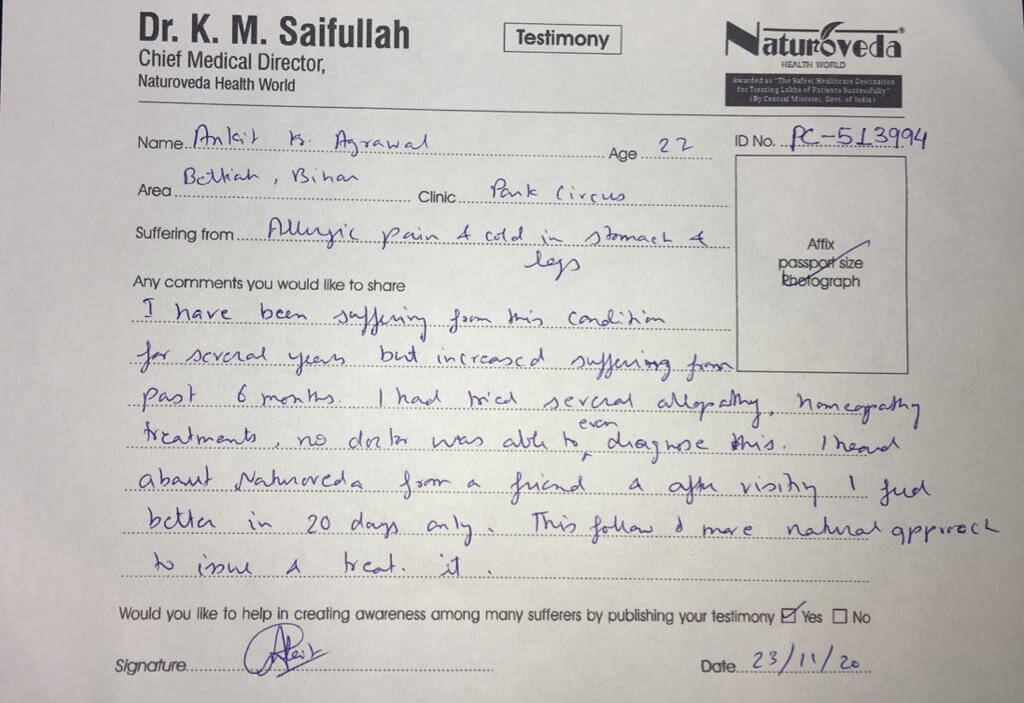 Dr. K. M. Saifullah
Chief Medical Director,
Naturoveda Health World
Testimony
Naturoveda
HEALTH WORLD
Awarded as "The Safest Healthcare Destination
for Treating Lakhs of Patients Successfully"
(By Central Minister, Govt. of India)
Name Ankit K. Agrawal Age 22 ID No. PC-513994
Area Bettiah, Bihar Clinic Park Circus
Suffering from Allergic pain & cold in stomach &
legs
Affix
passport size
Photograph
Any comments you would like to share
I have been suffering from this condition
for several years but increased suffering from
past 6 months. I had tried several allopathy, homeopathy
treatments, no doctor was able to even diagnose this. I heard
about Naturoveda from a friend & after visiting I feel
better in 20 days only. This follow & more natural approach
to issue & treat. it.
Would you like to help in creating awareness among many sufferers by publishing your testimony Yes No
Signature Ankit Date 23/11/20